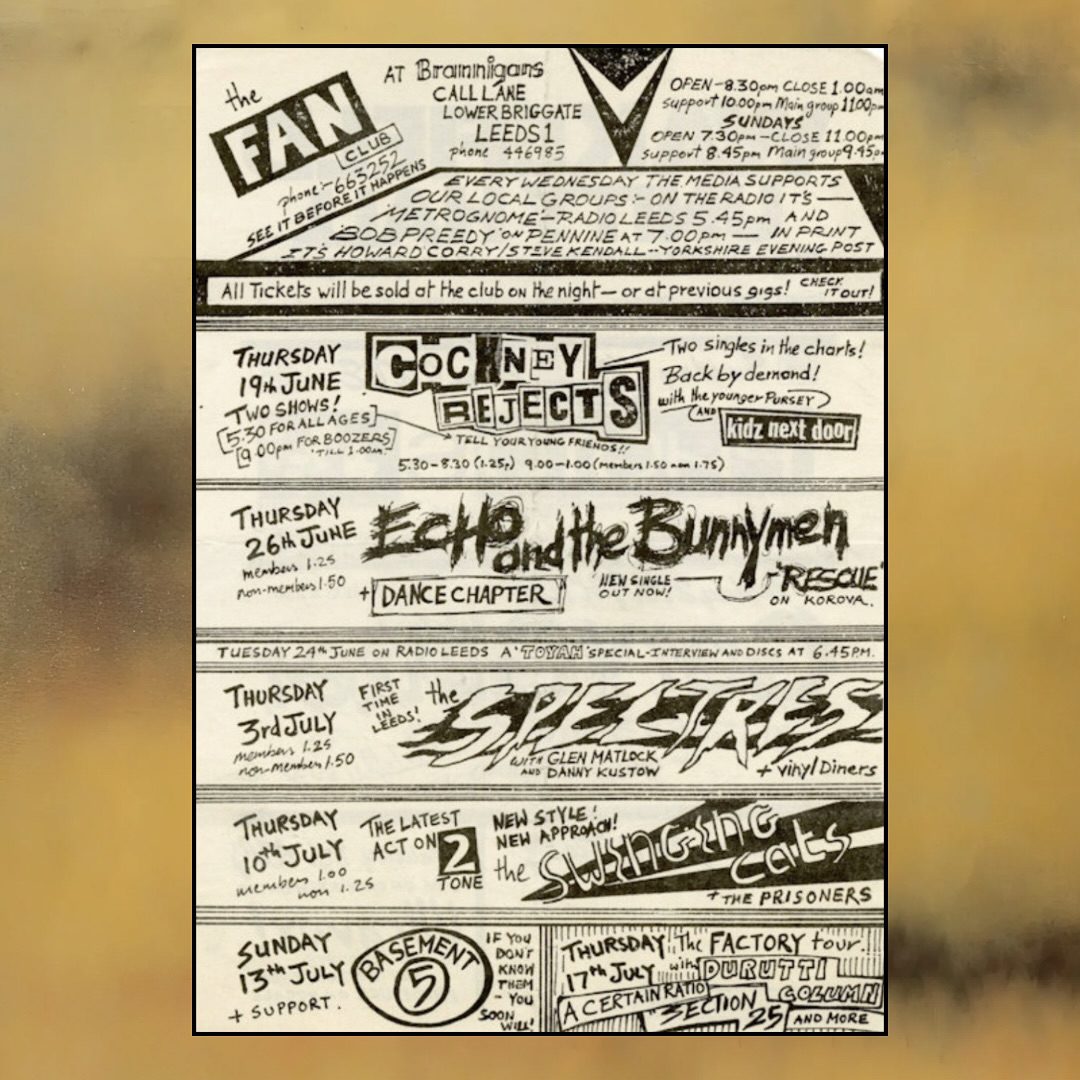 the
FAN
CLUB
phone:- 663252
SEE IT BEFORE IT HAPPENS
AT Brannigans
CALL LANE
LOWER BRIGGATE
LEEDS 1
phone 446985
OPEN-8.30pm CLOSE 1.00am
support 10.00pm Main group 11.00pm
SUNDAYS
OPEN 7.30pm-CLOSE 11.00pm
support 8.45pm Main group 9.45pm
EVERY WEDNESDAY THE MEDIA SUPPORTS
OUR LOCAL GROUPS:- ON THE RADIO IT'S —
'METROGNOME'-RADIO LEEDS 5.45pm AND
'BOB PREEDY' ON PENNINE AT 7.00pm — IN PRINT
IT'S HOWARD CORRY/STEVE KENDALL--YORKSHIRE EVENING POST
All Tickets will be sold at the club on the night — or at previous gigs! CHECK IT OUT!
THURSDAY
19th JUNE
TWO SHOWS!
5.30 FOR ALL AGES
9.00pm FOR BOOZERS
'TILL 1.00am
COCKNEY
REJECTS
TELL YOUR YOUNG FRIENDS!!
5.30-8.30 (1.25p) 9.00-1.00 (members 1.50 non 1.75)
Two singles in the charts!
Back by demand!
with the younger PURSEY
AND
kidz next door
THURSDAY
26th JUNE
members 1.25
non-members 1.50
Echo and the Bunnymen
+ DANCE CHAPTER
NEW SINGLE
OUT NOW!
-"RESCUE"
ON KOROVA.
TUESDAY 24th JUNE ON RADIO LEEDS A 'TOYAH' SPECIAL-INTERVIEW AND DISCS AT 6.45P.M.
THURSDAY
3rd JULY
members 1.25
non-members 1.50
FIRST
TIME
IN
LEEDS!
the SPECTRES
WITH GLEN MATLOCK
AND DANNY KUSTOW
+ vinyl Diners
THURSDAY
10th JULY
members 1.00
non 1.25
THE LATEST
ACT ON 2
TONE
NEW STYLE!
NEW APPROACH!
the SWINGING
cats
+ THE PRISONERS
SUNDAY
13th JULY
+ SUPPORT.
BASEMENT
5
IF YOU
DON'T
KNOW
THEM
- YOU
SOON
WILL!
THURSDAY
17th JULY
The FACTORY tour.
with DURUTTI
COLUMN
A CERTAIN RATIO
SECTION 25
AND MORE